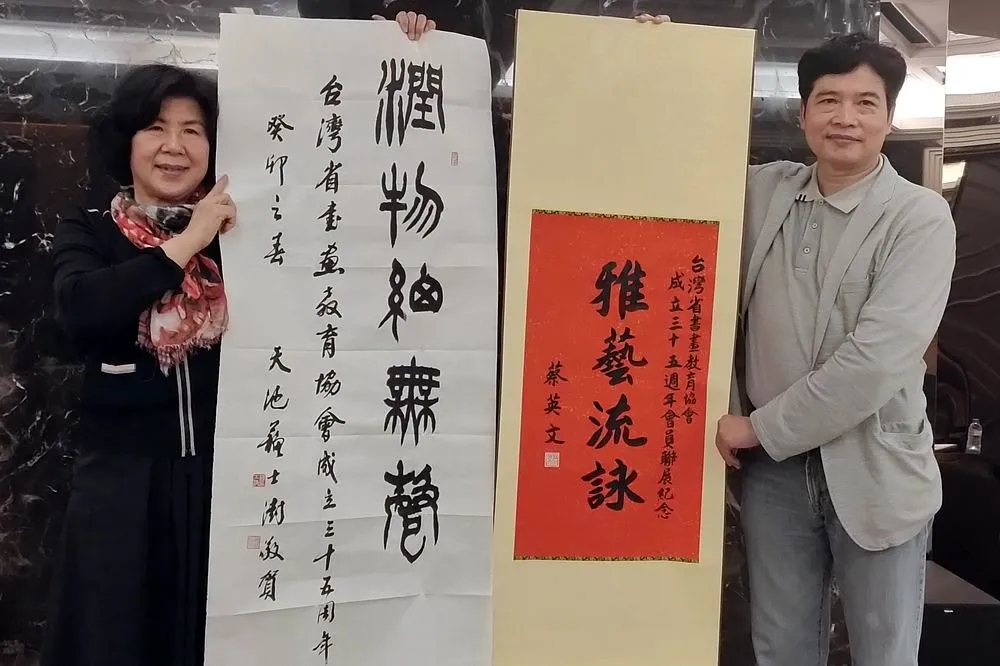 潤物細無聲
台灣省書畫教育協會成立三十五周年
癸卯之春 天池蘇士澍敬賀
台灣省書畫教育協會
成立三十五週年會員聯展紀念
雅藝流詠
蔡英文